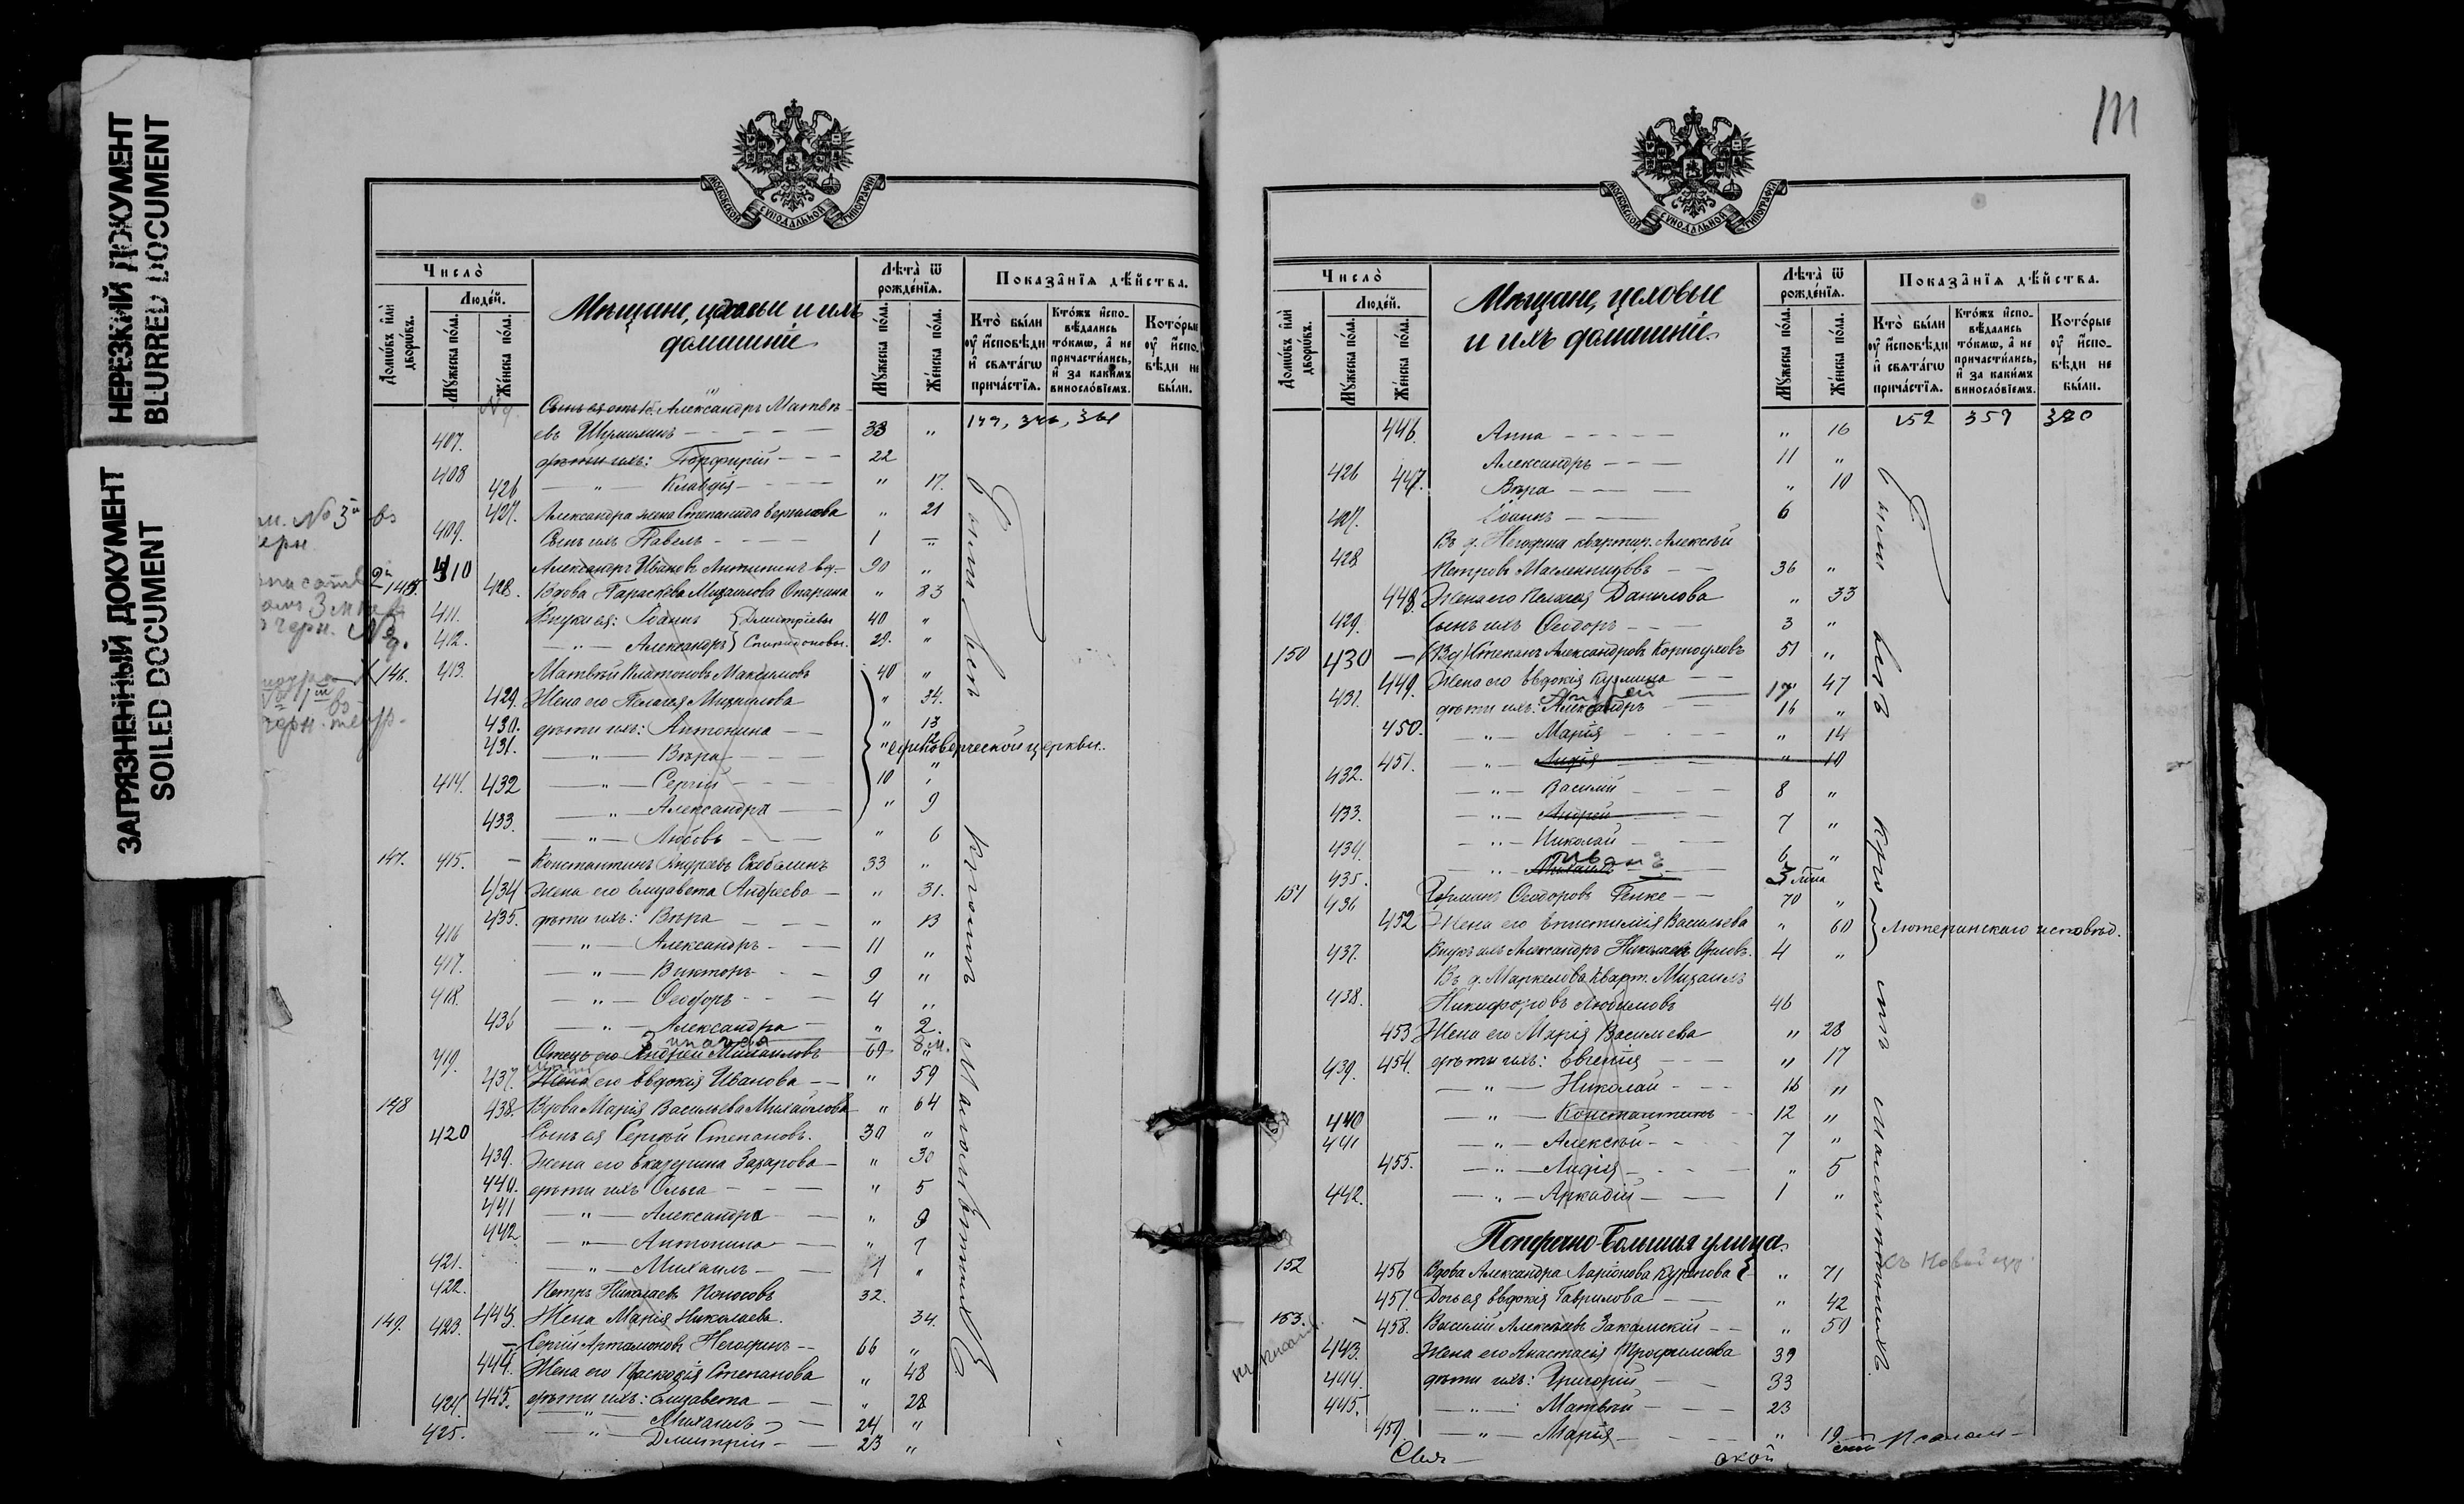 НЕРЕЗКИЙ ДОКУМЕНТ
BLURRED DOCUMENT
ЗАГРЯЗНЕННЫЙ ДОКУМЕНТ
SOILED DOCUMENT
МОСКОВСКОЙ СѴНОДАЛЬНОЙ ТИПОГРАФІИ
Число̀
Людéй.
Домѡ́въ и҆лѝ дворѡ́въ.
Мꙋ́жеска по́ла.
Же́нска по́ла.
Мѣщане, цеховые и ихъ
домашніе
Лѣта̀ ѿ рожде́нїѧ.
Мꙋ́жеска по́ла.
Же́нска по́ла.
Показа̑нїѧ дѣ́йства.
Кто̀ бы́ли ᲂу҆ и҆сповѣди и҆ свѧта́гѡ прича́стїѧ.
Кто́жъ и҆спо-вѣдались то́кмѡ, а҆ не причасти́лись, и҆ за каки́мъ винослові́емъ.
Кото́рые ᲂу҆ и҆спо-вѣди не бы́ли.
Сынъ ея отъ 1 б. Александръ Матвѣ-
407. евъ Шумилинъ 33 "
408 дѣти ихъ: Порфирій 22
426 Клавдія " 17.
427. Александра жена Степанида Ермилова " 21
409. Сынъ ихъ Павелъ 1 —
410 Александръ Ивановъ Антипинъ вд. 90 "
145. 428. Вдова Параскева Михаилова Опарина " 83
411. Внуки ея: Іоаннъ } Дмитріевы 40 "
412. Александръ } Спиридоновы. 29. "
146. 413. Матвѣй Платоновъ Максимовъ 40 "
429. Жена его Пелагея Михаилова " 34.
430. дѣти ихъ: Антонина " 13
431. Вѣра " 12 единовѣрческой церкви.
414. 432 Сергій 10 "
433. Александра " 9
Любовь " 6
147. 415. — Константинъ Андреевъ Скобалинъ 33 "
434 Жена его Елизавета Андреева " 31.
435. дѣти ихъ: Вѣра " 13
416 Александръ 11 "
417. Викторъ 9 "
418. Ѳеодоръ 4 "
436 Александра " 2.
Зинаида 8 м.
419. Отецъ его Андрей Михаиловъ 69 "
437. Жена его Евдокія Иванова " 59
148 438. Вдова Марія Васильева Михайлова " 64
420 Сынъ ея Сергѣй Степановъ. 30 "
439. Жена его Екатерина Захарова " 30
440. дѣти ихъ Ольга " 5
441 Александра " 9
442 Антонина " 7
421. Михаилъ 4 "
422. Петръ Николаевъ Поносовъ 32.
149. 423. 443. Жена Марія Николаева. 34.
Сергій Артамоновъ Негодинъ 66 "
444. Жена его Прасковія Степанова " 48
424. 445. дѣти ихъ: Елизавета " 28
Михаилъ 24 "
425. Дмитрій 23 "
Были всѣ кромѣ малолѣтнихъ
111
МОСКОВСКОЙ СѴНОДАЛЬНОЙ ТИПОГРАФІИ
Число̀
Людéй.
Домѡ́въ и҆лѝ дворѡ́въ.
Мꙋ́жеска по́ла.
Же́нска по́ла.
Мѣщане, цеховые
и ихъ домашніе.
Лѣта̀ ѿ рожде́нїѧ.
Мꙋ́жеска по́ла.
Же́нска по́ла.
Показа̑нїѧ дѣ́йства.
Кто̀ бы́ли ᲂу҆ и҆сповѣди и҆ свѧта́гѡ прича́стїѧ.
Кто́жъ и҆спо-вѣдались то́кмѡ, а҆ не причасти́лись, и҆ за каки́мъ винослові́емъ.
Кото́рые ᲂу҆ и҆спо-вѣди не бы́ли.
152 359
446. Анна " 16
426 Александръ 11 "
447. Вѣра " 10
427. Іоаннъ 6
Въ д. Негодина квартир. Алексѣй
428 Петровъ Масленниковъ 36 "
448. Жена его Пелагея Данилова " 33
429. Сынъ ихъ Ѳеодоръ 3 "
150 430 — (Вд) Степанъ Александровъ Корноуховъ 51 "
449. Жена его Евдокія Кузмина 47
Андрей 17
431. дѣти ихъ: Александръ 16 "
450. Марія " 14
451. Лидія " 10
432. Василій 8 "
433. Андрей 7 "
434. Николай 6 "
Иванъ
435. Михаилъ 3 мѣ
151 436 Германъ Ѳеодоровъ Генке 70 "
452 Жена его Епистимія Васильева " 60 Лютеранскаго исповѣд.
437. Внукъ ихъ Александръ Николаевъ Орловъ. 4 "
Въ д. Маркелова кварт. Михаилъ
438. Никифоровъ Любимовъ 46
453 Жена его Марія Васильева " 28
454. дѣти ихъ: Евгенія " 17
439. Николай 16 "
440 Константинъ 12 "
441 Алексѣй 7 "
455. Лидія " 5
442. Аркадій 1 "
Поперечно-Большая улица.
152 456 Вдова Александра Ларіонова Курепова " 71
457. Дочь ея Евдокія Гаврилова " 42
153. 458. Василій Алексѣевъ Закамскій " 59
443. Жена его Анастасія Трофимова 39
444. дѣти ихъ: Григорій 33
445. Матвѣй 23
459. Марія " 19
Были всѣ кромѣ малолѣтнихъ.
Свя-
ской
Псалом-